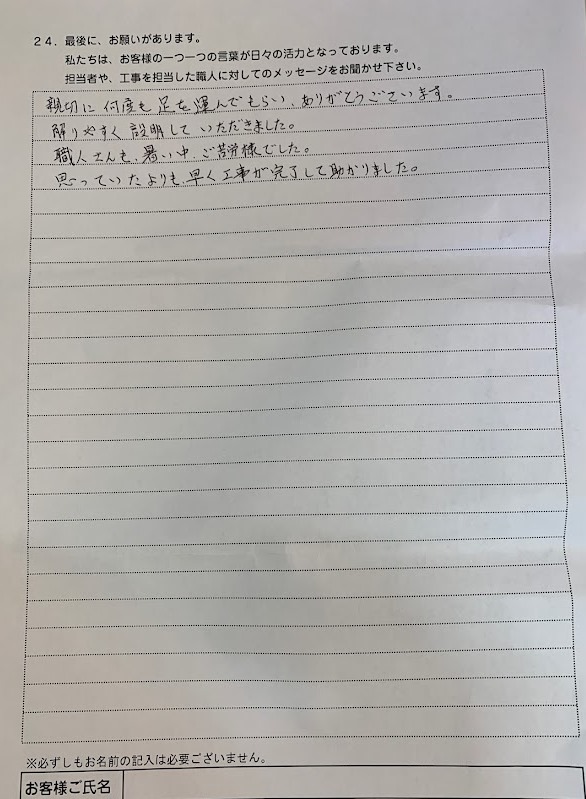 ２４．最後に、お願いがあります。
私たちは、お客様の一つ一つの言葉が日々の活力となっております。
担当者や、工事を担当した職人に対してのメッセージをお聞かせ下さい。
親切に何度も足を運んでもらい、ありがとうございます。
解りやすく説明していただきました。
職人さんも、暑い中、ご苦労様でした。
思っていたよりも早く工事が完了して助かりました。
※必ずしもお名前の記入は必要ございません。
お客様ご氏名